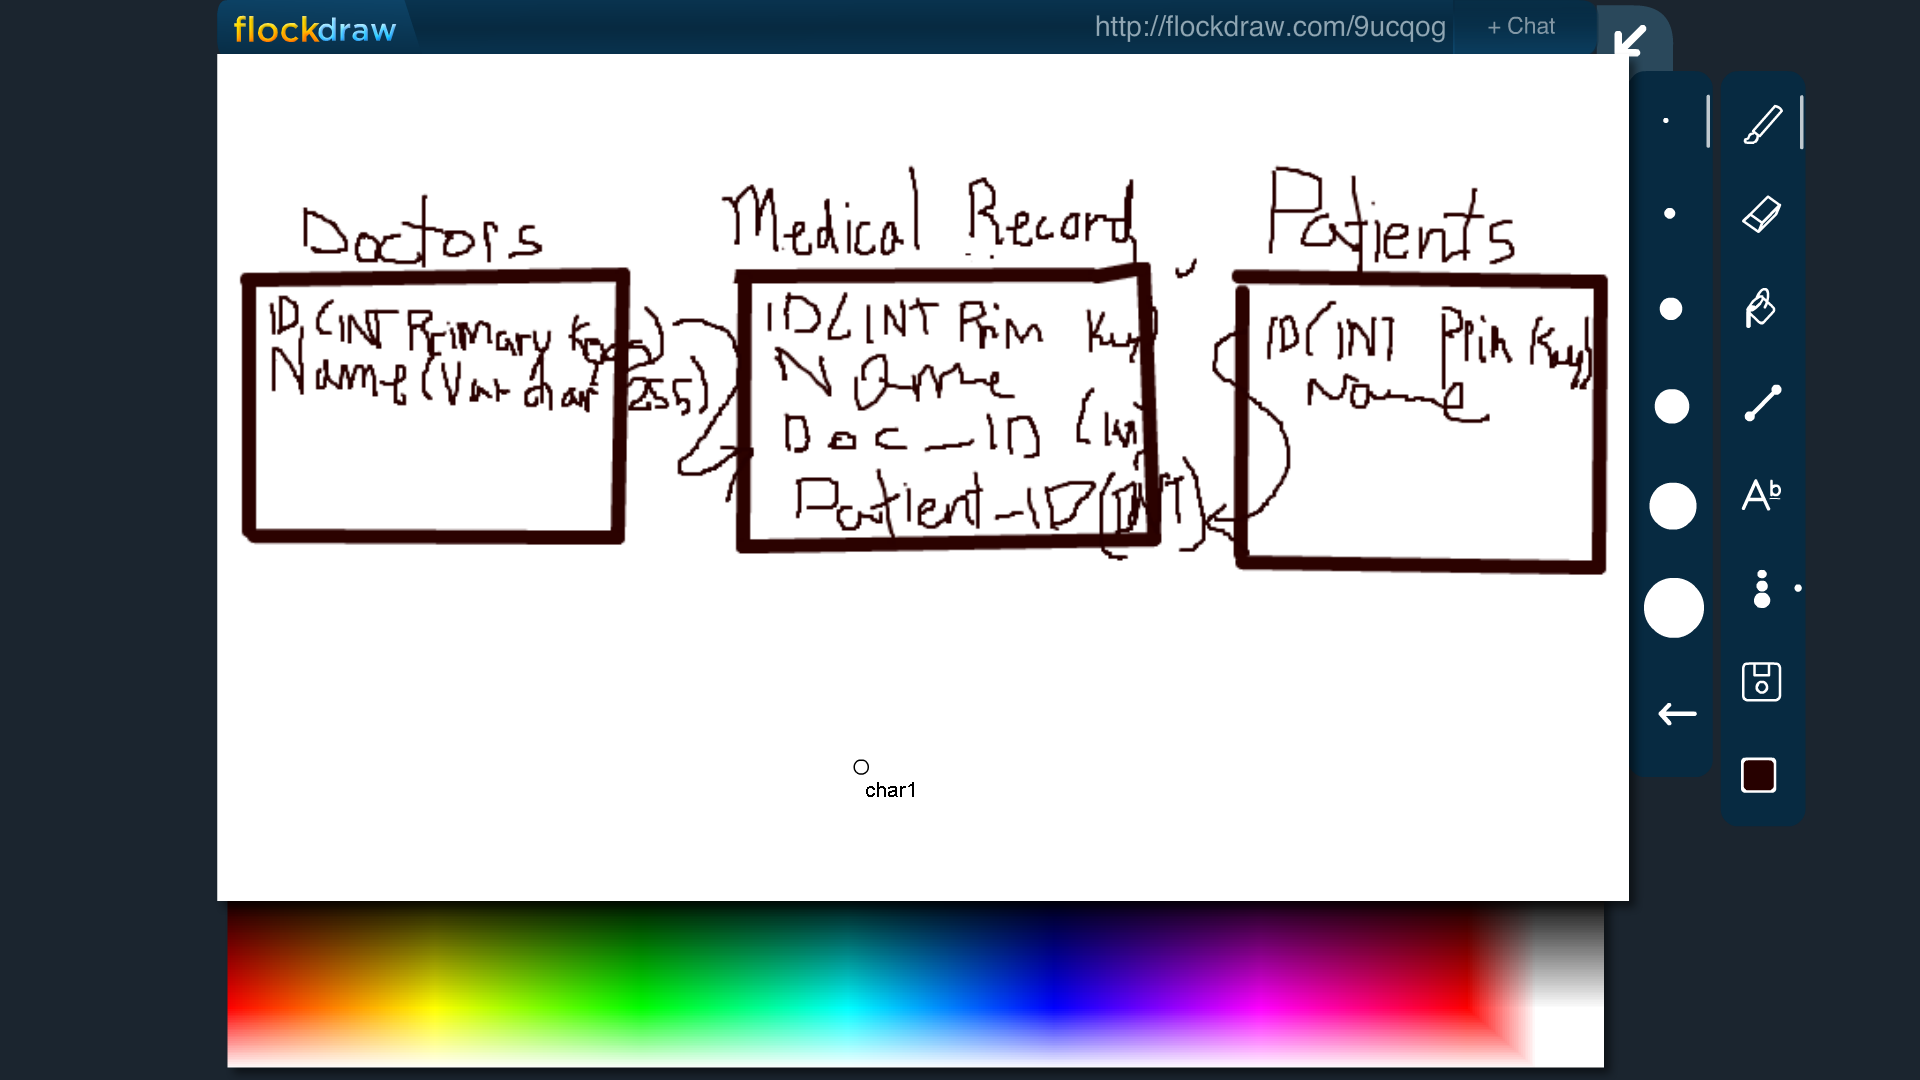 flockdraw
http://flockdraw.com/9ucqog
+ Chat
Doctors
ID (INT Primary Key)
Name (Varchar 255)
Medical Record
ID (INT Prim Key)
Name
Doc_ID (Int
Patient_ID (INT)
Patients
ID (INT Prim Key)
Name
char1
Ab